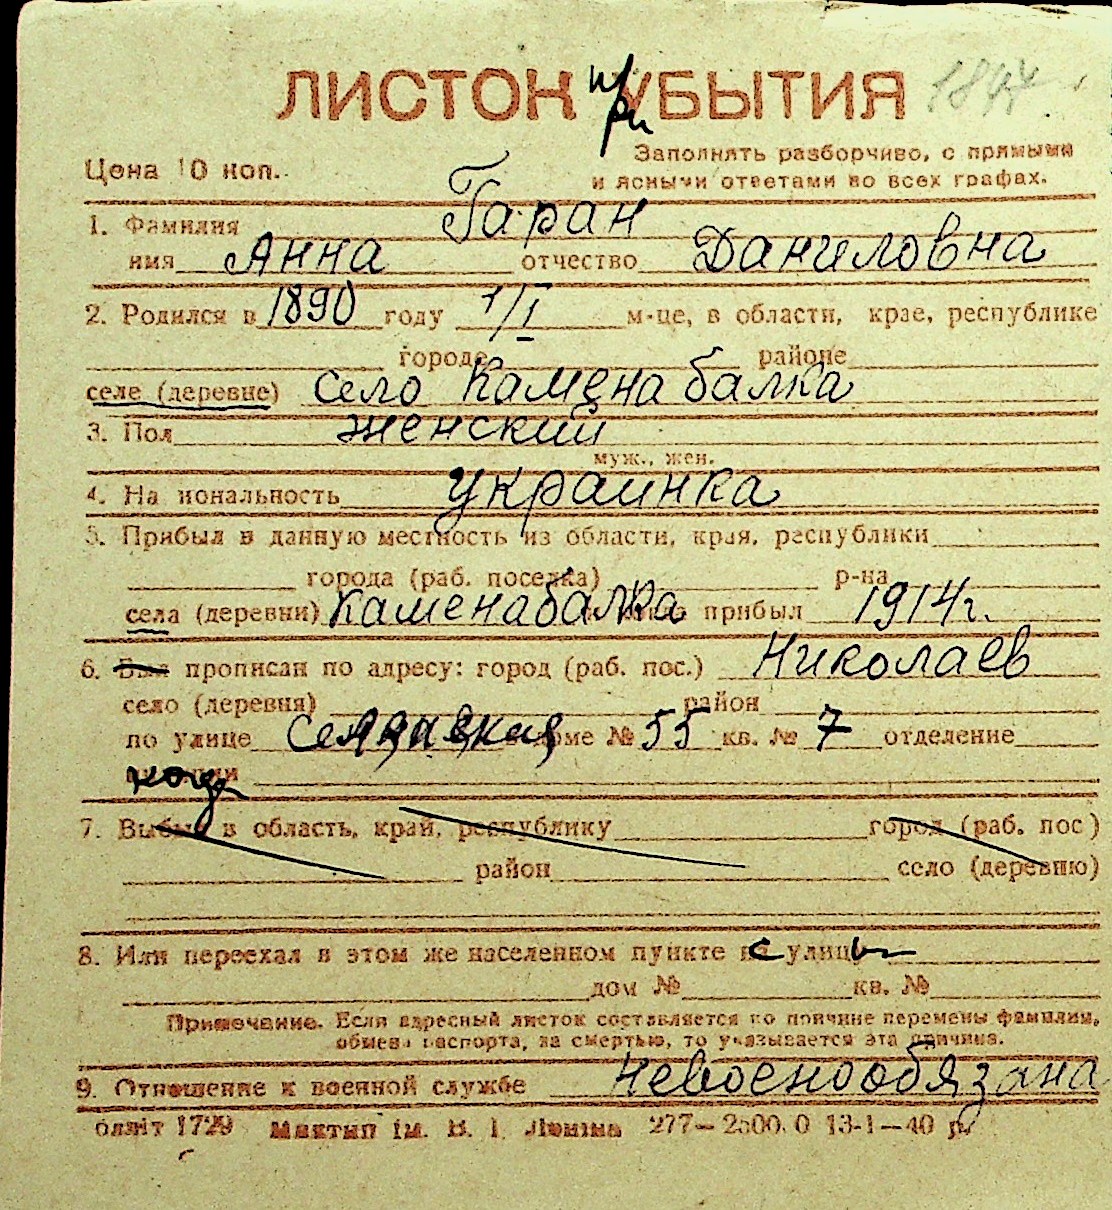 ЛИСТОК при УБЫТИЯ
Цена 10 коп.
Заполнять разборчиво, с прямыми
и ясными ответами во всех графах.
1. Фамилия Гаран
имя Анна отчество Даниловна
2. Родился в 1890 году 1/I м-це, в области, крае, республике
городе районе
селе (деревне) село Камена балка
3. Пол женский
муж., жен.
4. На иональность украинка
5. Прибыл в данную местность из области, края, республики
города (раб. поселка) р-на
села (деревни) Каменабалка прибыл 1914г.
6. Был прописан по адресу: город (раб. пос.) Николаев
село (деревня) район
по улице доме № 55 кв. № 7 отделение
7. Выбыл в область, край, республику город (раб. пос)
район село (деревню)
8. Или переехал в этом же населенном пункте с улицы
дом № кв. №
Примечание. Если адресный листок составляется по причине перемены фамилии,
обмена паспорта, за смертью, то указывается эта причина.
9. Отношение к военной службе Невоенообязана
1729 277—2500.0 13-1—40 р.